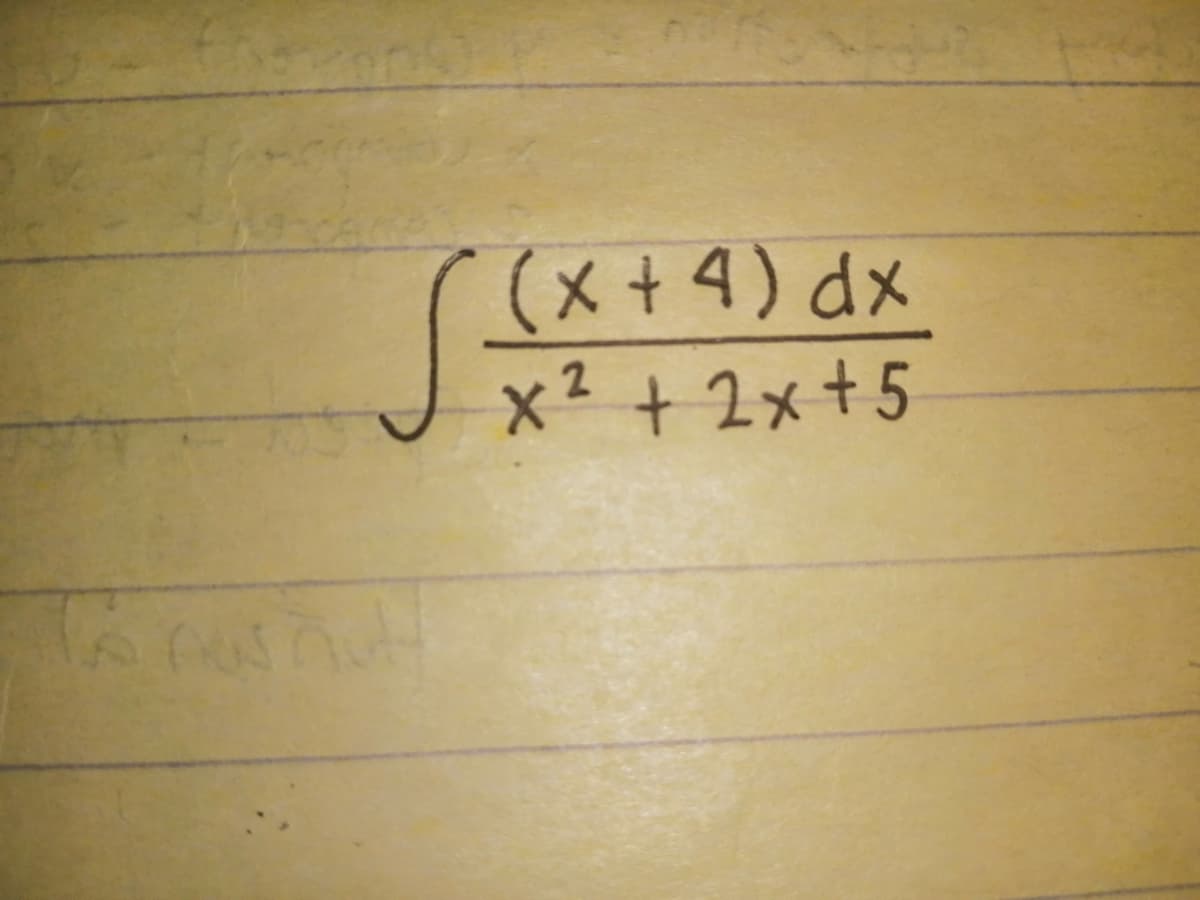 ∫ (x + 4) dx
x² + 2x + 5